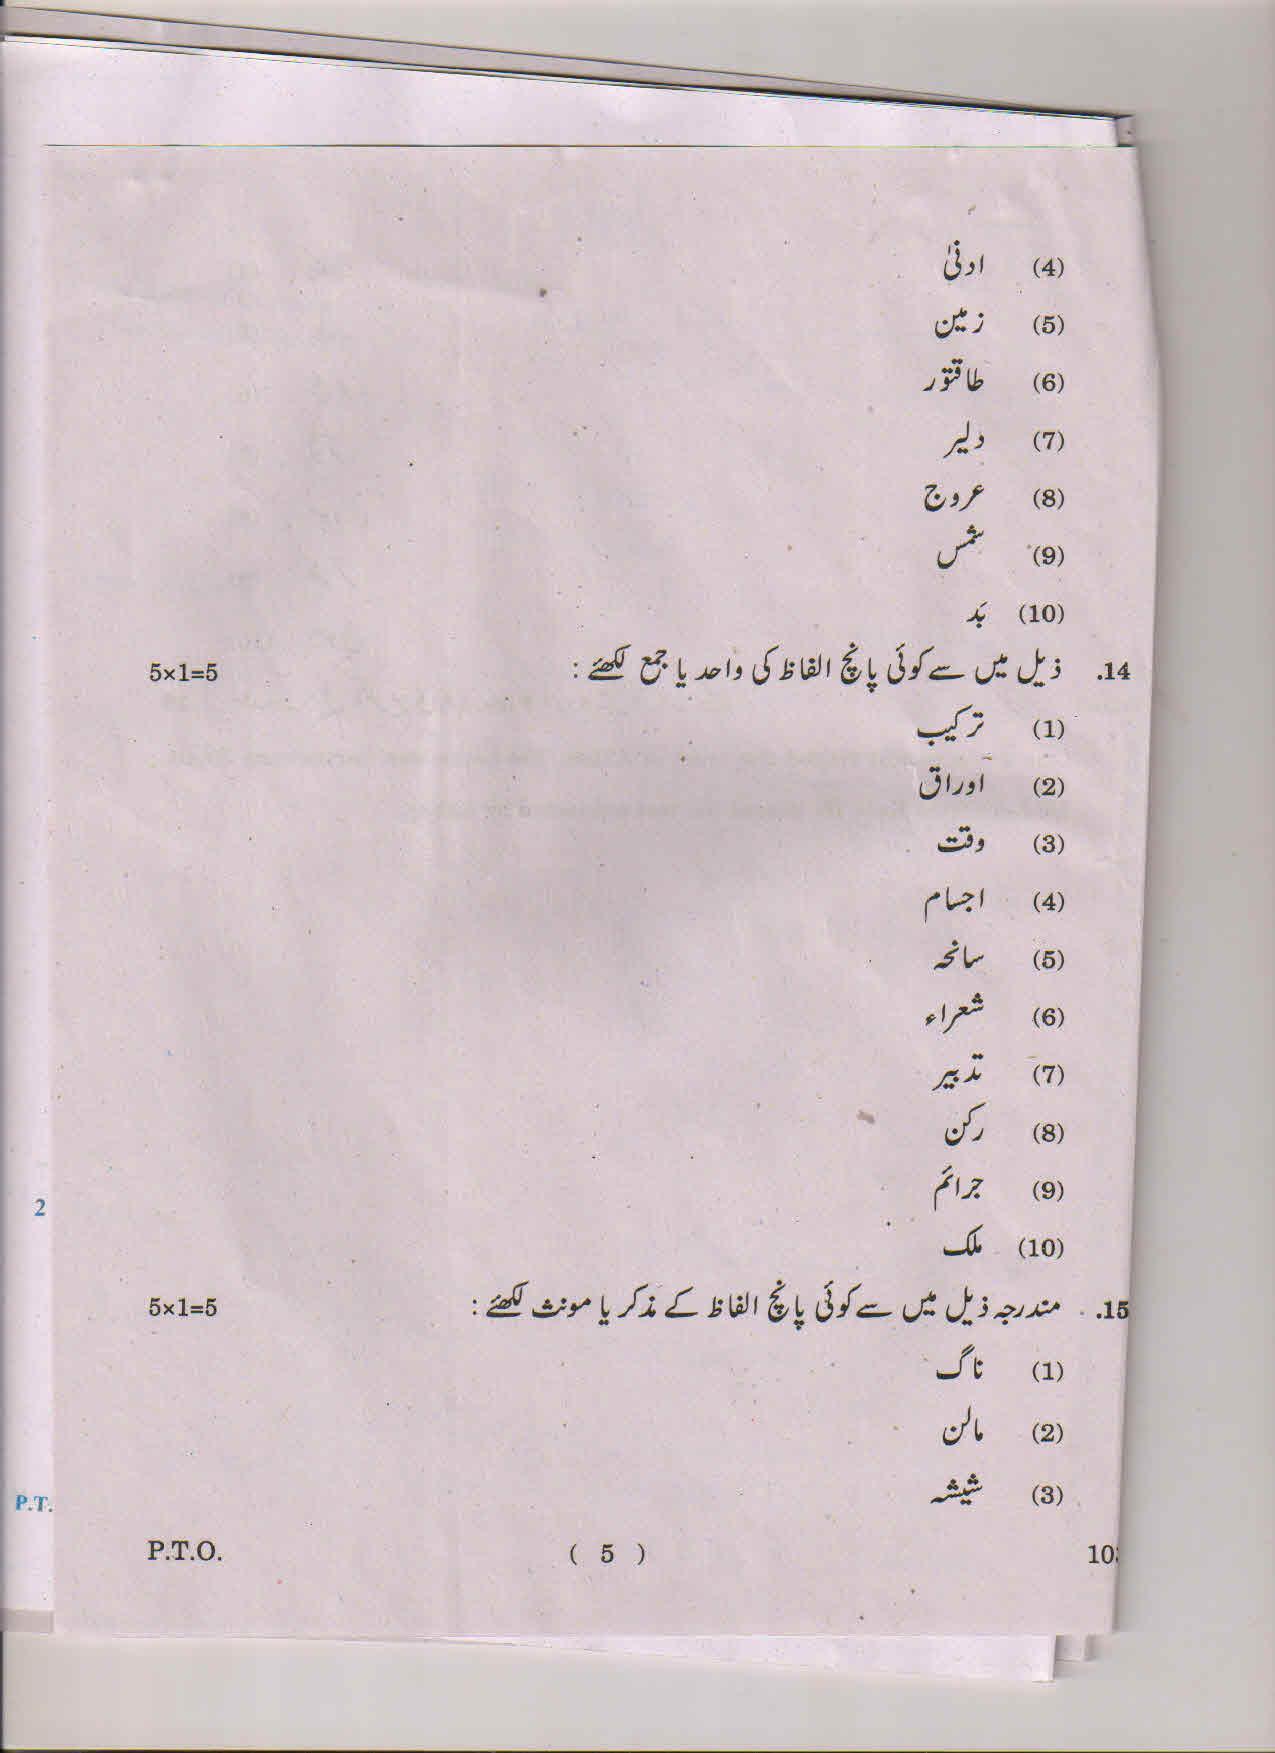 (4) ادنیٰ
(5) زمین
(6) طاقتور
(7) دلیر
(8) عروج
(9) شمس
(10) بَد
14. ذیل میں سے کوئی پانچ الفاظ کی واحد یا جمع لکھئے : 5×1=5
(1) ترکیب
(2) اوراق
(3) وقت
(4) اجسام
(5) سانحہ
(6) شعراء
(7) تدبیر
(8) رکن
(9) جرائم
(10) ملک
15. مندرجہ ذیل میں سے کوئی پانچ الفاظ کے مذکر یا مونث لکھئے : 5×1=5
(1) ناگ
(2) مالن
(3) شیشہ
P.T.O. ( 5 ) 10
2
P.T.